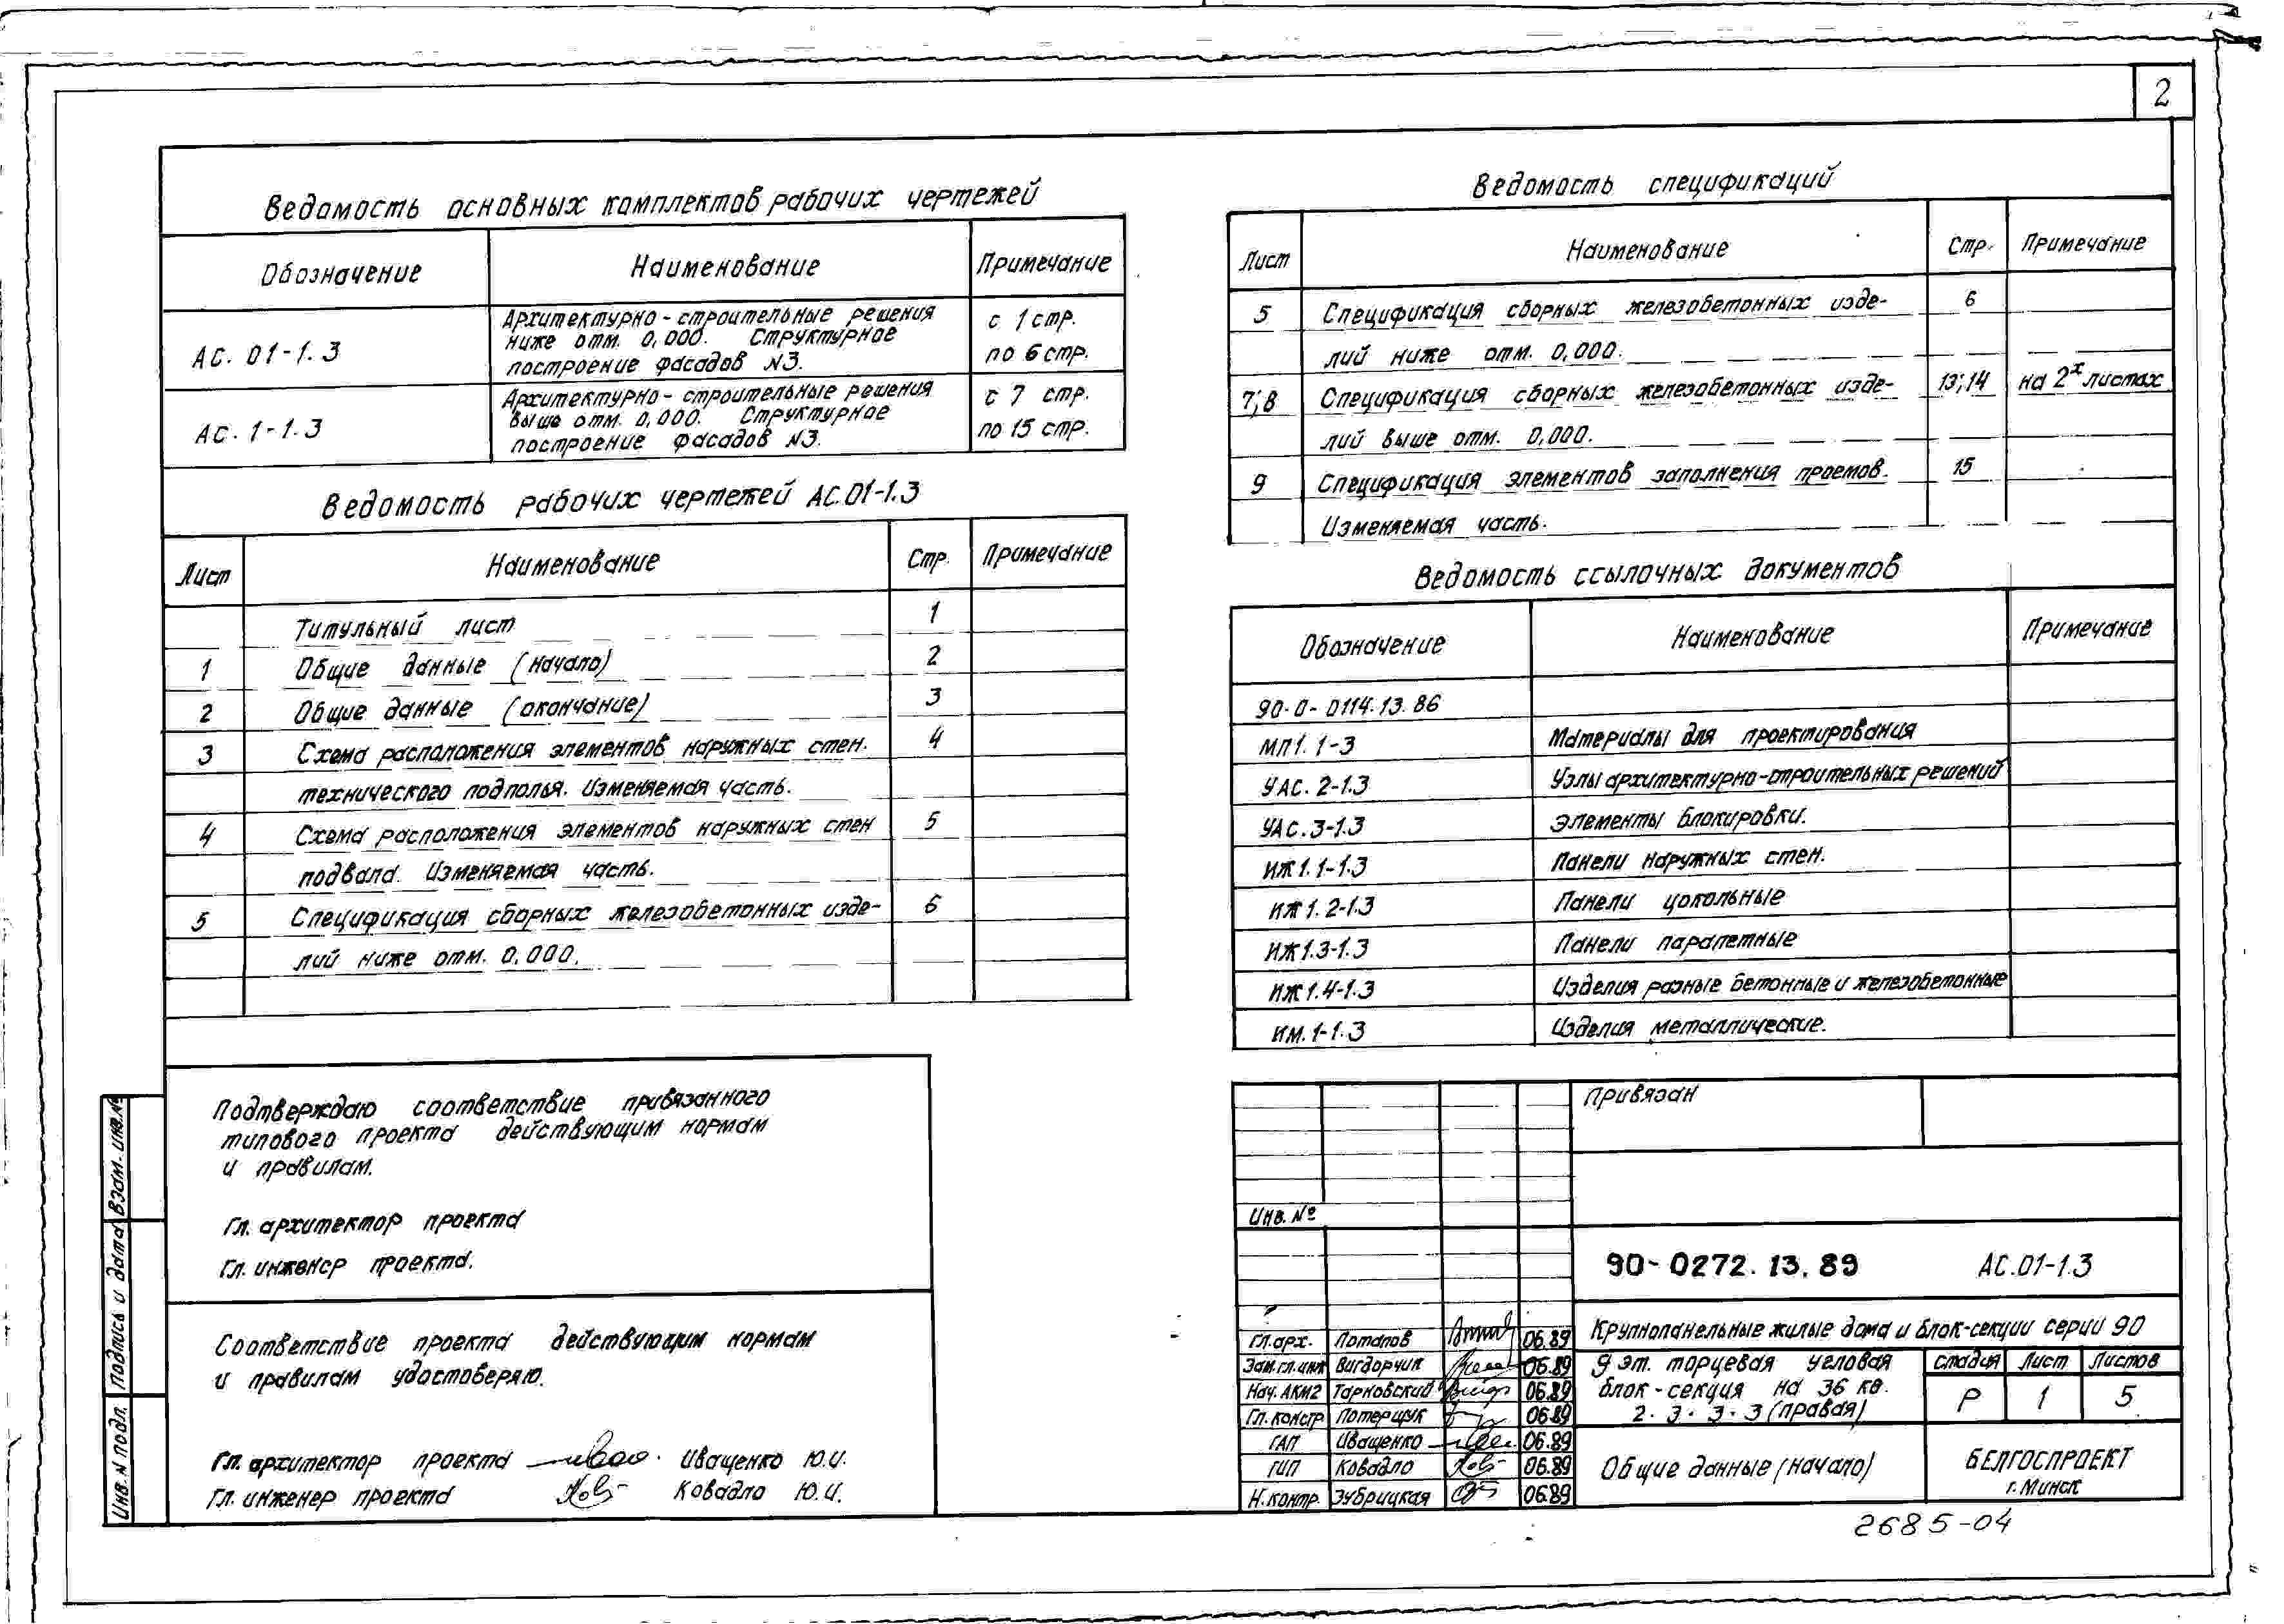 2
Ведомость основных комплектов рабочих чертежей
Обозначение Наименование Примечание
АС. 01-1.3 Архитектурно-строительные решения ниже отм. 0,000. Структурное построение фасадов №3. с 1 стр. по 6 стр.
АС. 1-1.3 Архитектурно-строительные решения выше отм. 0,000. Структурное построение фасадов №3. с 7 стр. по 15 стр.
Ведомость рабочих чертежей АС.01-1.3
Лист Наименование Стр. Примечание
Титульный лист 1
1 Общие данные (начало) 2
2 Общие данные (окончание) 3
3 Схема расположения элементов наружных стен. 4
технического подполья. Изменяемая часть.
4 Схема расположения элементов наружных стен 5
подвала. Изменяемая часть.
5 Спецификация сборных железобетонных изде- 6
лий ниже отм. 0,000.
Подтверждаю соответствие привязанного
типового проекта действующим нормам
и правилам.
Гл. архитектор проекта
Гл. инженер проекта.
Соответствие проекта действующим нормам
и правилам удостоверяю.
Гл. архитектор проекта Иващенко Ю.И.
Гл. инженер проекта Ковадло Ю.И.
Взам. инв. №
Подпись и дата
Инв. N подл.
Ведомость спецификаций
Лист Наименование Стр. Примечание
5 Спецификация сборных железобетонных изде- 6
лий ниже отм. 0,000.
7; 8 Спецификация сборных железобетонных изде- 13; 14 на 2х листах
лий выше отм. 0,000.
9 Спецификация элементов заполнения проемов. 15
Изменяемая часть.
Ведомость ссылочных документов
Обозначение Наименование Примечание
90-0-0114.13.86
МП1.1-3 Материалы для проектирования
УАС.2-1.3 Узлы архитектурно-строительных решений
УАС.3-1.3 Элементы блокировки.
ИЖ1.1-1.3 Панели наружных стен.
ИЖ1.2-1.3 Панели цокольные
ИЖ1.3-1.3 Панели парапетные
ИЖ1.4-1.3 Изделия разные бетонные и железобетонные
ИМ.1-1.3 Изделия металлические.
Привязан
Инв. №
90-0272.13.89 АС.01-1.3
Крупнопанельные жилые дома и блок-секции серии 90
Гл. арх. Потапов 06.89
Зам. гл. инж Вигдорчик 06.89
Нач. АКМ2 Тарновский 06.89
Гл. констр Потерщук 06.89
ГАП Иващенко 06.89
ГИП Ковадло 06.89
Н. контр. Зубрицкая 06.89
9 эт. торцевая угловая
блок-секция на 36 кв.
2.3.3.3 (правая)
Стадия Лист Листов
Р 1 5
Общие данные (начало)
БЕЛГОСПРОЕКТ
г. Минск
2685-04